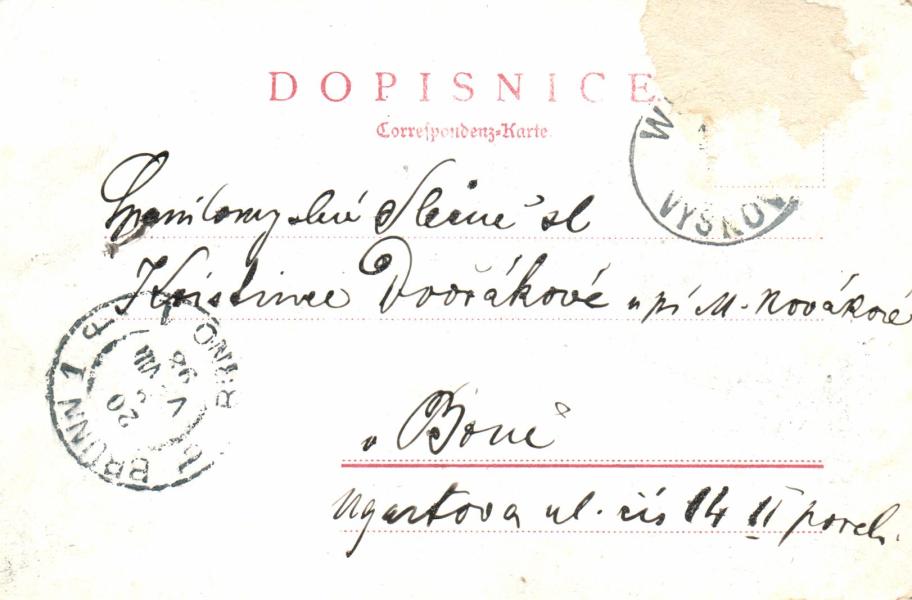 DOPISNICE
Correspondenz-Karte.
VYŠKOV
Slečně sl
Kristince Dvořákové u pí M. Novákové
BRÜNN 1 BRNO
20 VIII 98
v Brně
ul. čís 14 II poch.